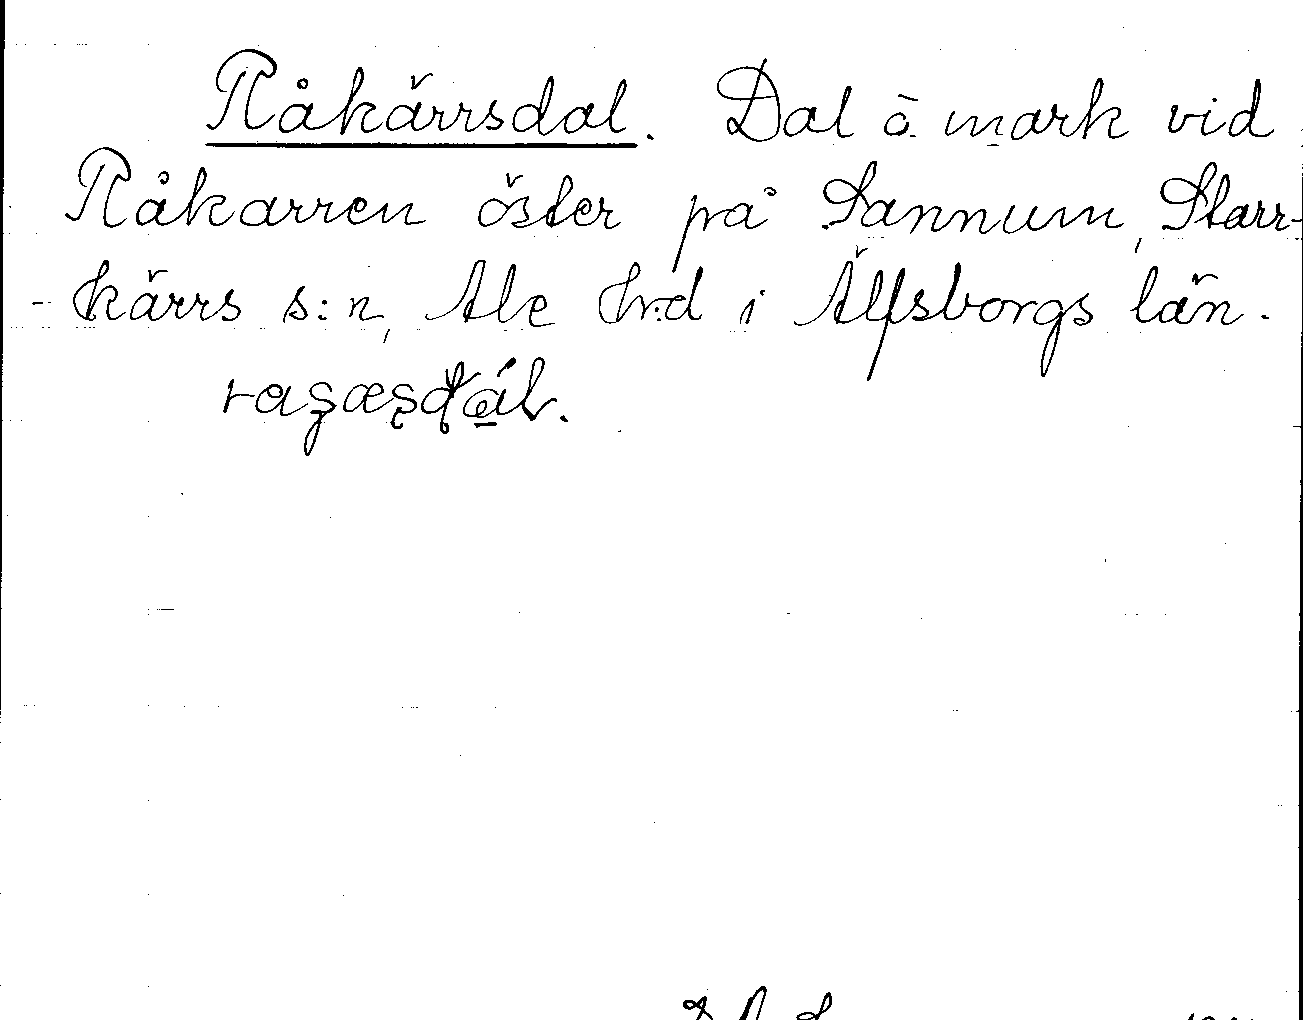 Råkärrsdal. Dal å mark vid
Råkarren öster på Sannum, Starr-
-kärrs s:n, Ale hrd i Älfsborgs län.